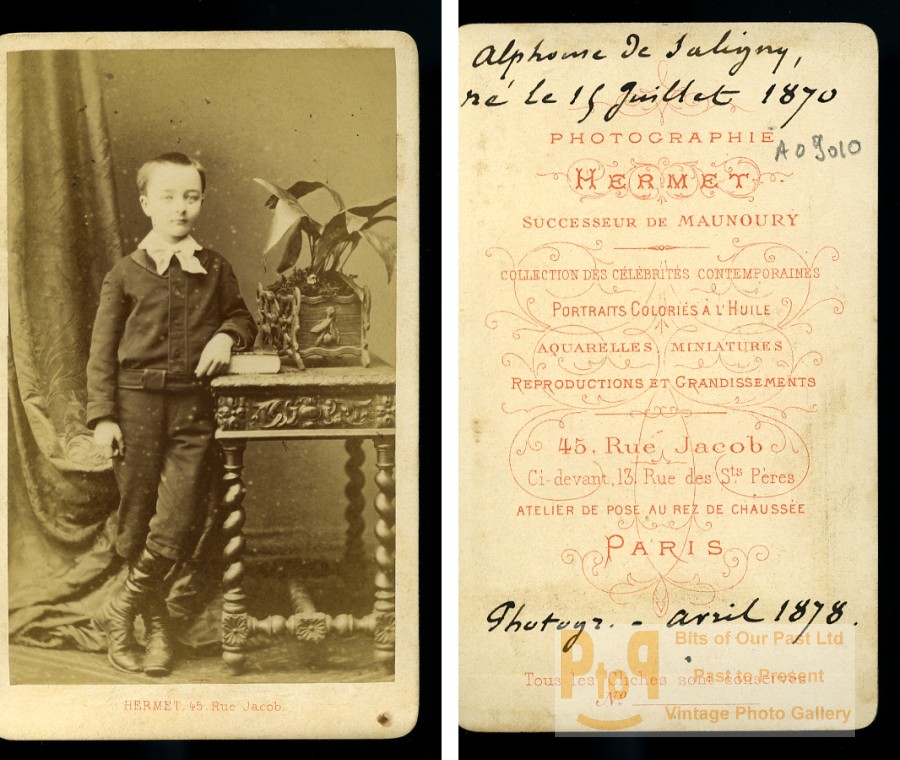 HERMET, 45. Rue Jacob.
Alphonse de Saligny,
né le 15 Juillet 1870
PHOTOGRAPHIE
A09010
HERMET.
SUCCESSEUR DE MAUNOURY
COLLECTION DES CÉLÉBRITÉS CONTEMPORAINES
PORTRAITS COLORIÉS À L'HUILE
AQUARELLES MINIATURES
REPRODUCTIONS ET GRANDISSEMENTS
45, Rue Jacob
Ci-devant, 13, Rue des Sts Pères
ATELIER DE POSE AU REZ DE CHAUSSÉE
PARIS
Photogr. - avril 1878.
Bits of Our Past Ltd
PtoP
Past to Present
Tous les clichés sont conservés
Nro
Vintage Photo Gallery